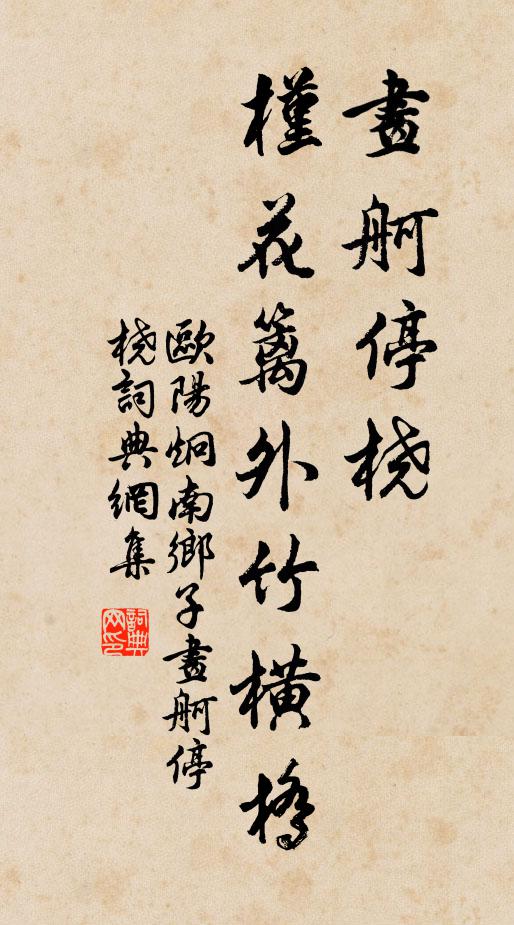 畫舸停桡
槿花篱外竹橫橋
歐陽炯南鄉子畫舸停
桡詞典網集
詞典
网印